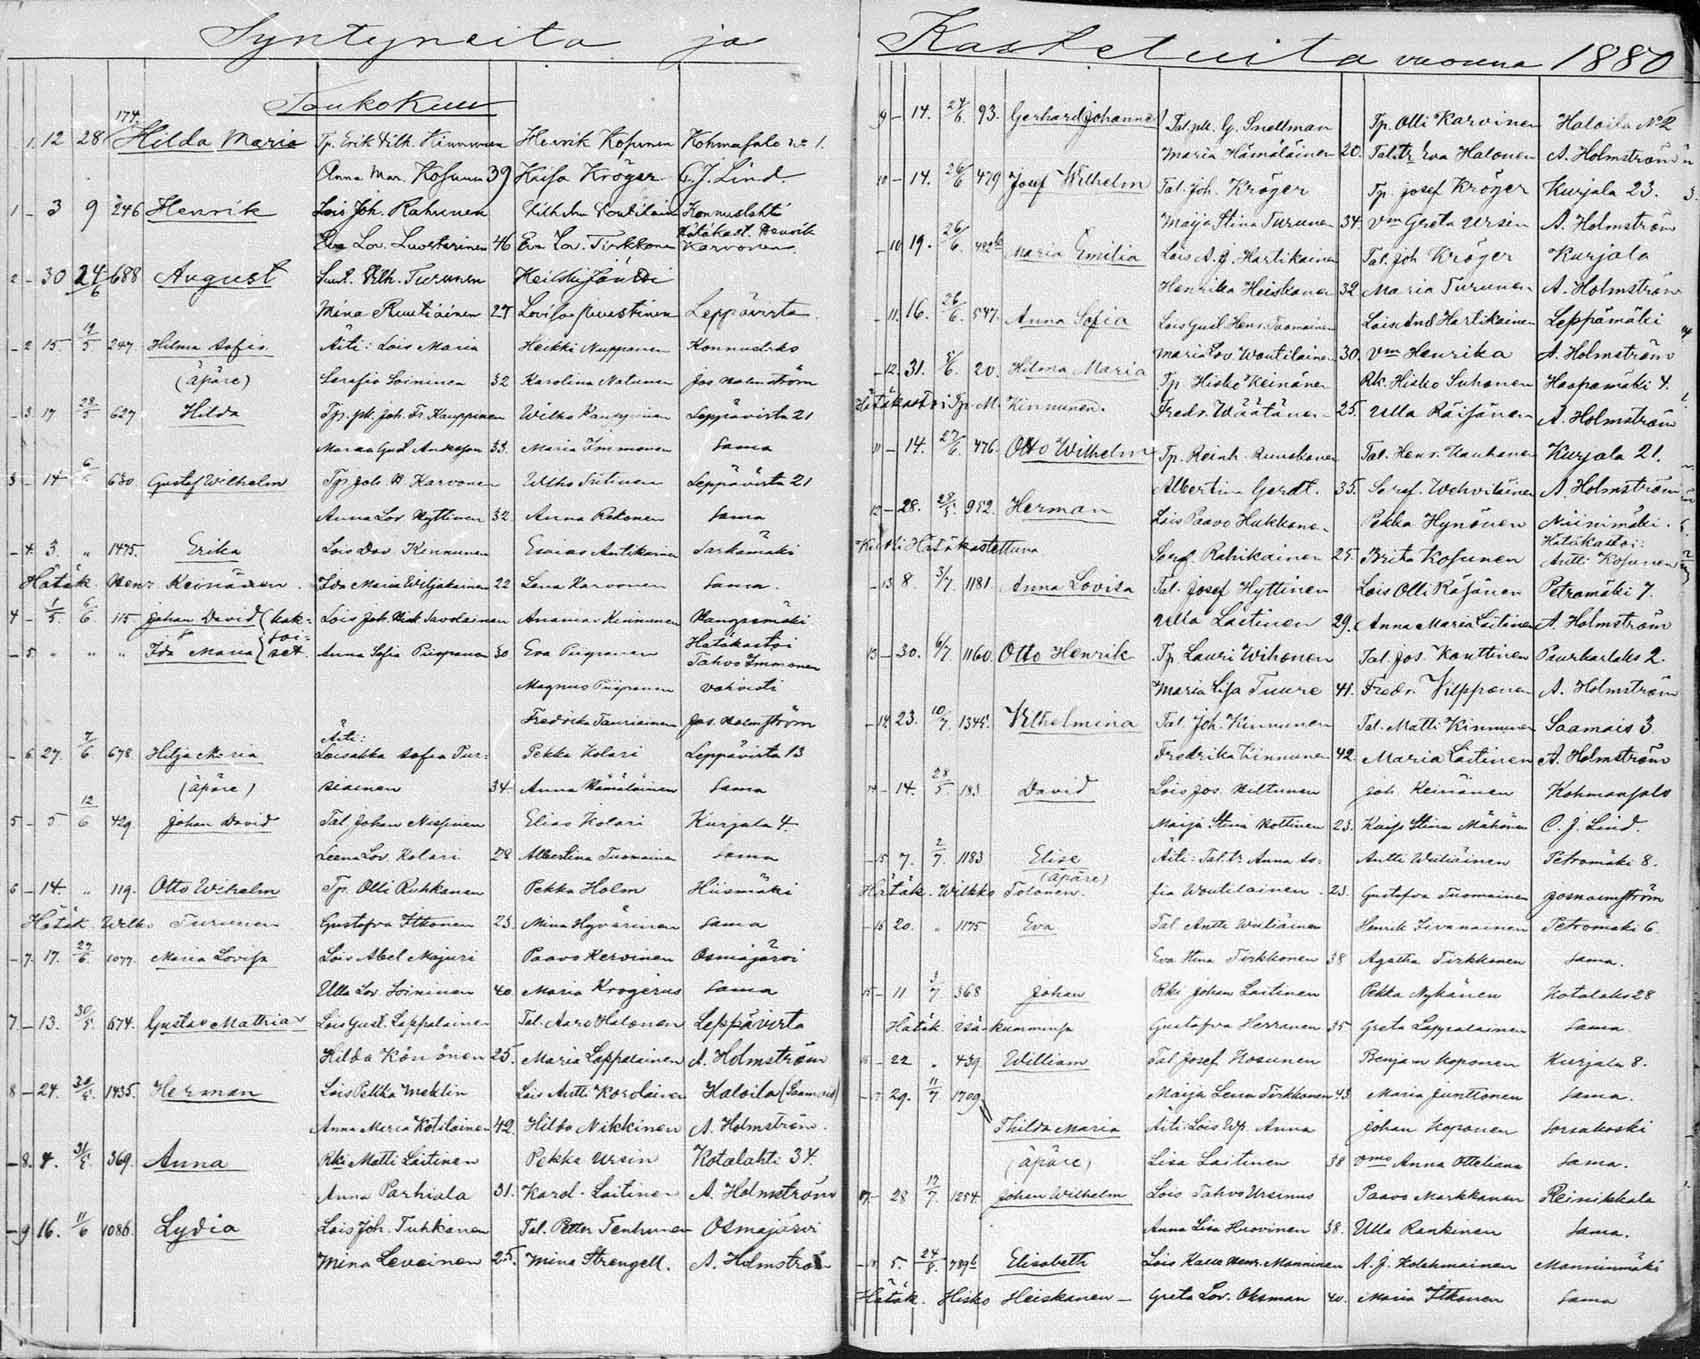 Syntyneitä ja
Toukokuu
1. 12 28 174. Hilda Maria Tp. Erik Vilh. Kinnunen Henrik Kosunen Kohmasalo No 1.
Anna Mar. Kosunen 39 Kaisa Kröger C. J. Lind.
1 - 3 9 246 Henrik Lois Joh. Rahunen Vilhelm Voutilain Konnuslahti
Hätäkast. Henrik
Eva Lov. Luostarinen 46 Eva Lov. Tirkkonen Karvonen.
2 - 30 24/6 688 August Suut. Vilh. Turunen Heikki Jäntti
Mina Ruutiainen 27 Lovisa Leppävirta
- 2 15. 19/5 247. Hilma Sofia. Äiti: Lois Maria Heikki Nupponen
(äpäre) Serafia Soininen 32 Karolina Natunen Jos Holmström
- 3. 17 28/5 627 Hilda Tp. Joh. Fr. Kauppinen Wilho Kauppinen Leppävirta 21
Maria Gust. Andersson 33. Maria Immonen Sama
3 - 14 6/6 630 Gustaf Wilhelm Tp. Joh. H. Karvonen Wilho Tutinen Leppävirta 21
Anna Lov. Hyttinen 32 Anna Rekonen Sama
- 4. 3. " 1475. Erika Lois Dav. Kinnunen Esaias Antikainen Sarkamäki
Hätäk. Henr. Keinänen. Ida Maria Wiljakainen 22 Lena Karvonen Sama.
4 - 1/5 6/6 115 Johan David (kak- Lois Joh. Savolainen Ananias Kinnunen Kangasmäki
- 5 " " " & Ida Maria soi- set. Anna Sofia Piispanen 30 Eva Piispanen Hätäkastoi
Tahvo Immonen
Magnus Piispanen vahvisti
Fredrika Tauriainen Jos. Holmström
- 6 27. 7/6 678 Hilja Maria Äiti: Loisakka Sofia Tur- Pekka Kolari Leppävirta 13
(äpäre) siainen 34 Anna Hämäläinen Sama
5 - 5 12/6 429 Johan David Tal Johan Niskanen Elias Kolari Kurjala 4.
Leena Lov. Kolari 28 Albertina Tuomainen Sama
6 - 14. " 119. Otto Wilhelm Tp. Olli Ruhkanen Pekka Holm Hiismäki
Hätäk. Wilho Turunen Gustafva Itkonen 23. Mina Hyvärinen Sama
- 7. 17. 27/6 1077. Maria Lovisa Lois Abel Majuri Paavo Kervinen Osmajärvi 2
Ulla Lov. Soininen 40 Maria Krogerus Sama
7 - 13. 30/5 674. Gustav Mathias Lois Gust. Lappalainen Tal. Aaro Halonen Leppävirta
Hilda Könönen 25. Maria Lappalainen A. Holmström
8 - 24. 30/5 1435. Herman Lois Pekka Meklin Lois Antti Karolainen Haloila (Saamais)
Anna Maria Kotilainen 42. Hilda Nikkinen A. Holmström.
- 8. 4. 31/5 369. Anna Rki Matti Laitinen Pekka Ursin Kotalahti 34.
Anna Parhiala 31. Karol. Laitinen A. Holmström
- 9 16. 11/6 1086. Lydia Lois Joh. Tuhkanen Tal. Petter Tenhunen Osmajärvi
Mina Leveinen 25. Mina Strengell. A. Holmström
Kastetuita vuonna 1880
9 - 14. 24/6. 93. Gerhard Johannes Tal. pk. G. Snellman Tp. Olli Karvinen Haloila No 2
Maria Hämäläinen 20. Tal. tr Eva Halonen A. Holmström
10 - 14. 26/6 479 Josef Wilhelm Tal. Joh. Kröger Tp. Josef Kröger Kurjala 23.
Maija Stina Turunen 34. Vm Greta Ursin A. Holmström
- 10 19. 26/6. 482b Maria Emilia Lois A. J. Hartikainen Tal. Joh Kröger Kurjala
Henrika Heiskanen 32 Maria Turunen A. Holmström
- 11. 16. 26/6. 547. Anna Sofia Lois Gust. Henr. Tuomainen Lois. And Hartikainen Leppämäki
Maria Lov. Woutilainen 30. Vm Henrika A. Holmström
- 12. 31. /6. 20. Hilma Maria Tp. Hisko Keinänen Rk. Hisko Suhonen Haapamäki 4.
Hätäkastoi Tp. M. Kinnunen. Fredr. Wäätänen 25. Ulla Räisänen A. Holmström
11 - 14. 27/6. 476. Otto Wilhelm Tp. Reinh. Ruuskanen Tal. Henr. Kauhanen Kurjala 21.
Albertina Gerdt. 35. Seraf. Wehviläinen A. Holmström
12 - 28. 28/5. 952. Herman Lois Paavo Hukkanen Pekka Hynönen Niinimäki.
Hätäkastettuna Seraf. Rahikainen 25. Brita Kosunen Hätäkastoi: Antti Kosunen
- 13 8. 3/7. 1181 Anna Lovisa Tal. Josef Hyttinen Lois Olli Räsänen Petromäki 7.
Ulla Laitinen 29. Anna Maria Laitinen A. Holmström
13 - 30. 6/7. 1160. Otto Henrik Tp Lauri Wihonen Tal. Jos. Kauttinen Paukarlaks 2.
Maria Lisa Tuure 41. Fredr. Vilpponen A. Holmström
- 14 23. 10/7. 1345. Vilhelmina Tal. Joh. Kinnunen Tal. Matti Kinnunen Saamais 3.
Fredrika Kinnunen 42. Maria Laitinen A. Holmström
14 - 14. 28/5 183 David Lois Jos. Hiltunen Joh. Keinänen Kohmansalo
Maija Stina Kottinen 23. Kaisa Stina Mähönen C. J. Lind.
- 15 7. 2/7. 1183 Elise Äiti: Tal. tr. Anna So- Antti Wäliäinen Petromäki 8.
(äpäre)
Hätäk. Wilkko Tolonen. fia Woutilainen 23. Gustafva Tuomainen Jos Holmström
- 16 20. " 1175 Eva Tal. Antti Wäliäinen Henrik Sivanainen Petromäki 6.
Eva Stina Tirkkonen 38 Agatha Tirkkonen Sama.
15 - 11 3/7 368 Johan Rki Johan Laitinen Pekka Nykänen Kotalaks 28
Hätäk. isä-kummisa Gustafva Herranen 35 Greta Lappalainen Sama.
16 - 22 . 439. William Tal. Josef Kosunen Benjam Koponen Kurjala 8.
- 17 29. 11/7 1709 Maija Leena Tirkkonen 43 Maria Junttonen Sama.
Thilda Maria Äiti Lois Wp. Anna Johan Koponen Sorsakoski
(äpäre) Lisa Laitinen 38 Vmo Anna Otteliana Sama.
17 - 28 17/7. 1254. Johan Wilhelm Lois Tahvo Ursinus Paavo Markkanen Reinikkala
Anna Lisa Huovinen 38. Ulla Rankinen Sama.
- 18 5. 24/8. 789b Elisabeth Lois Henr. Manninen A. J. Kolehmainen Manninmäki
Hätäk. Hisko Heiskanen - Greta Lov. Oksman 40. Maria Itkonen Sama